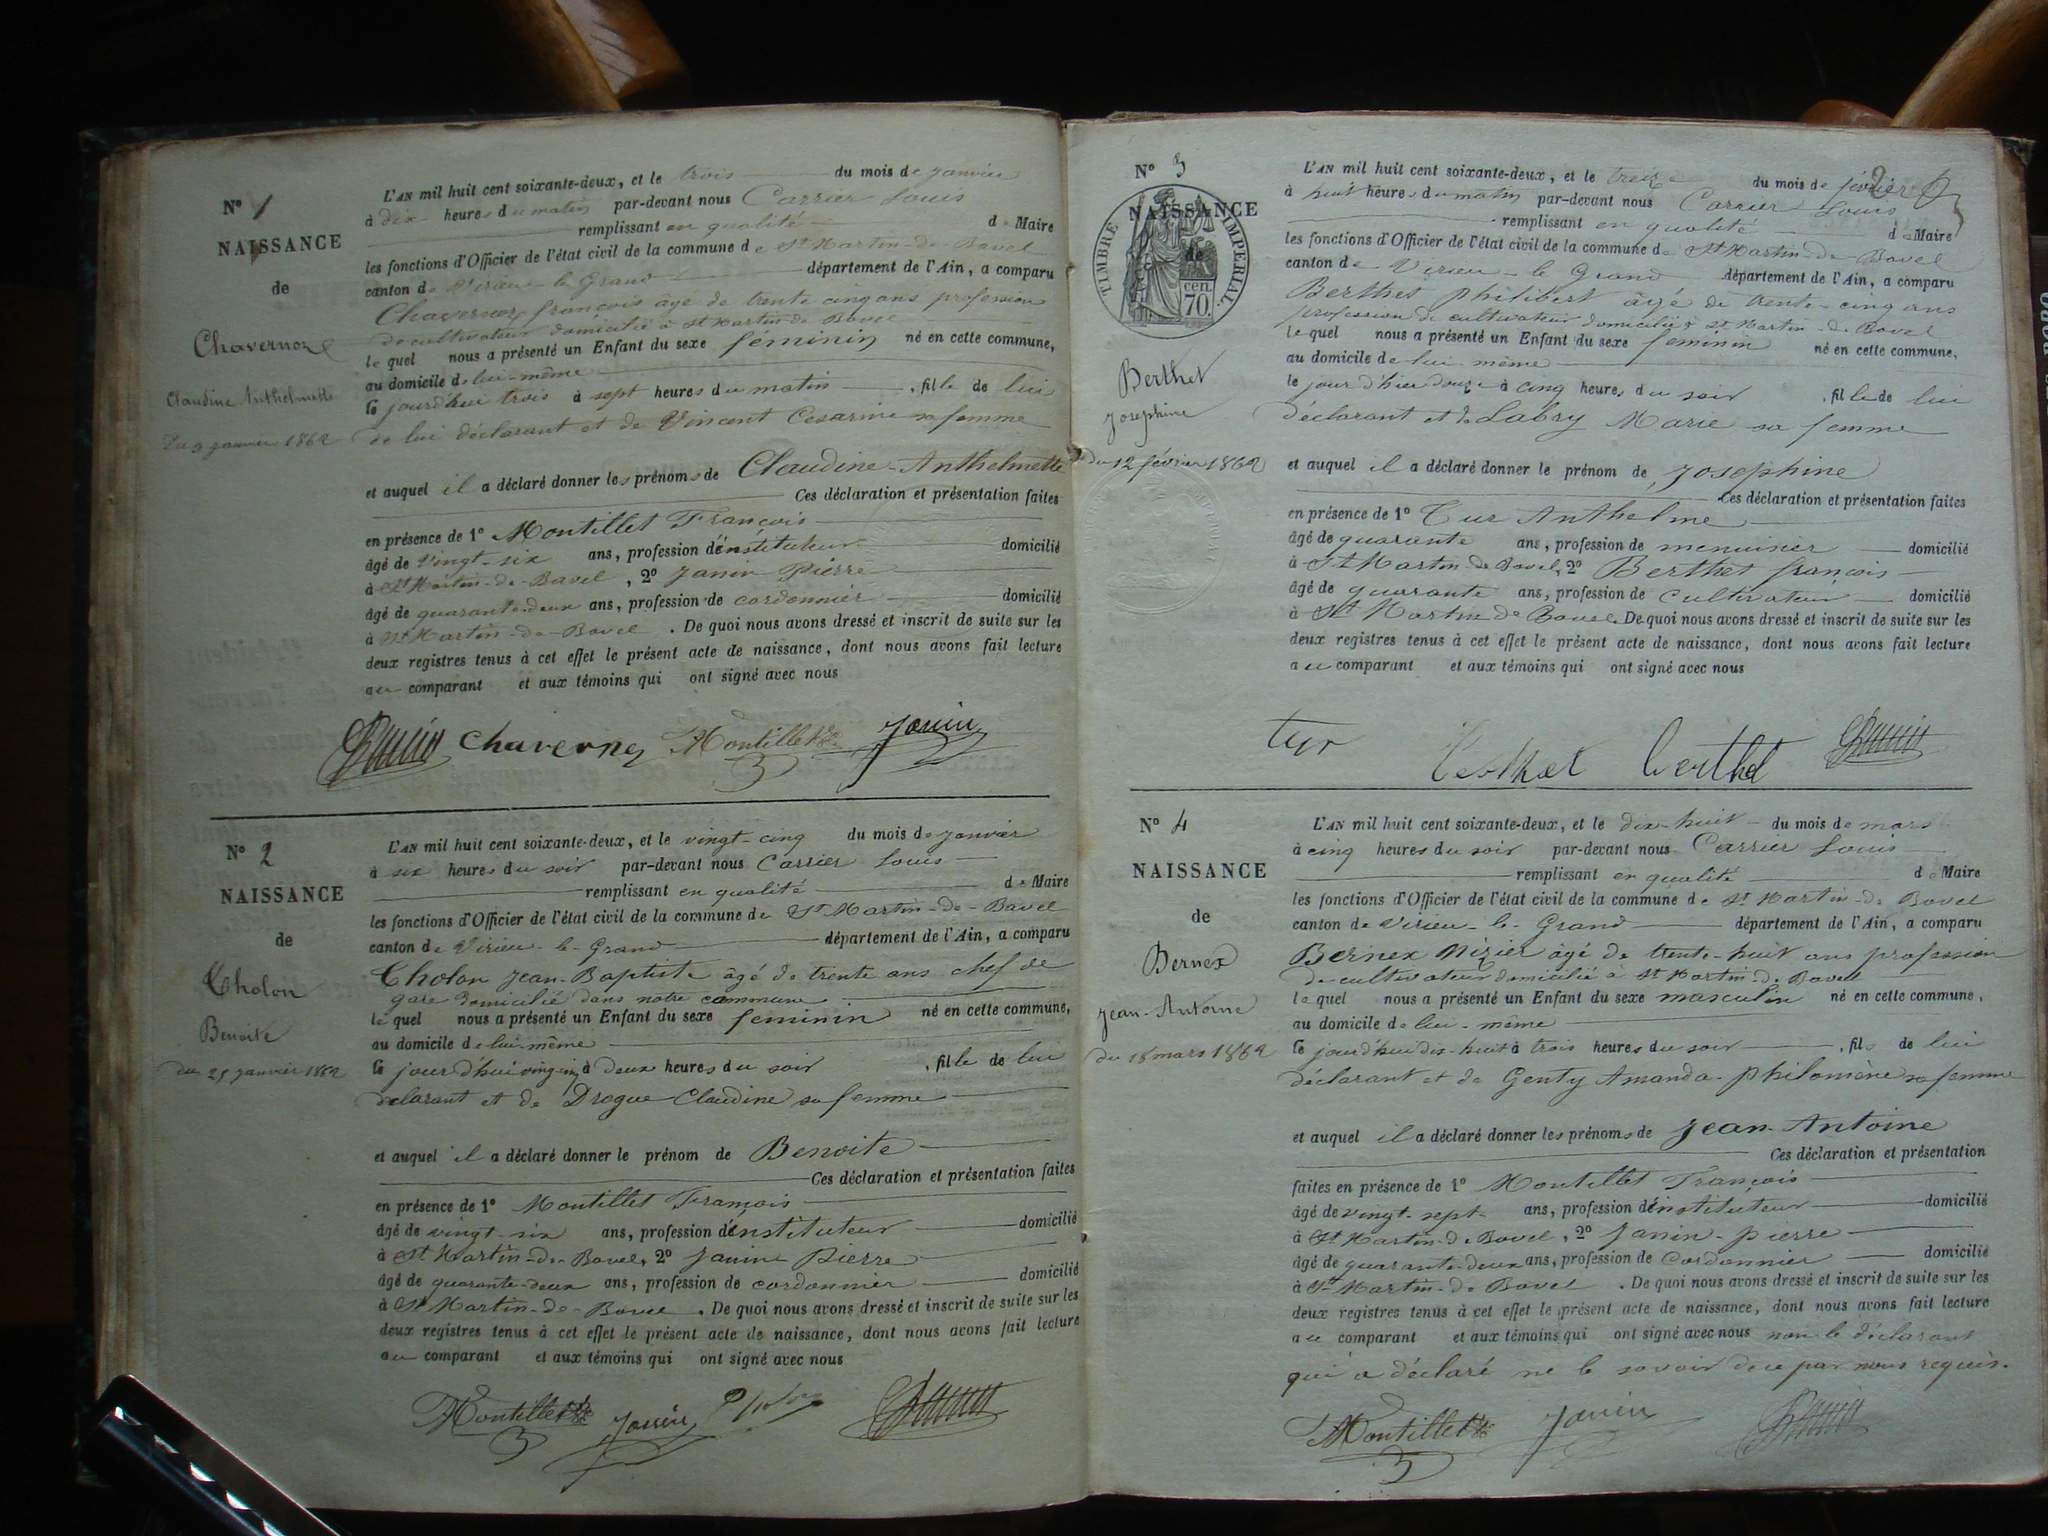 N° 1
NAISSANCE
de
Chavernoz
Claudine Anthelmette
Du 3 janvier 1862
L'AN mil huit cent soixante-deux, et le trois du mois de janvier
à dix heures du matin par-devant nous Carrier Louis
remplissant en qualité de Maire
les fonctions d'Officier de l'état civil de la commune de St Martin-de-Bavel
canton de Virieu-le-Grand département de l'Ain, a comparu
Chavernoz françois âgé de trente cinq ans profession
de cultivateur domicilié à St Martin-de-Bavel
lequel nous a présenté un Enfant du sexe féminin né en cette commune,
au domicile de lui-même
le jourd'hui trois à sept heures du matin, fille de lui
de lui déclarant et de Vincent Césarine sa femme
et auquel il a déclaré donner les prénoms de Claudine-Anthelmette
Ces déclaration et présentation faites
en présence de 1° Montillet François
âgé de vingt-six ans, profession d'instituteur domicilié
à St Martin-de-Bavel, 2° Janin Pierre
âgé de quarante-deux ans, profession de cordonnier domicilié
à St Martin-de-Bavel. De quoi nous avons dressé et inscrit de suite sur les
deux registres tenus à cet effet le présent acte de naissance, dont nous avons fait lecture
au comparant et aux témoins qui ont signé avec nous
Chavernoz Montillet Janin
N° 2
NAISSANCE
de
Cholon
Benoite
du 25 janvier 1862
L'AN mil huit cent soixante-deux, et le vingt-cinq du mois de janvier
à six heures du soir par-devant nous Carrier Louis
remplissant en qualité de Maire
les fonctions d'Officier de l'état civil de la commune de St Martin-de-Bavel
canton de Virieu-le-Grand département de l'Ain, a comparu
Cholon Jean-Baptiste âgé de trente ans chef de
gare domicilié dans notre commune
lequel nous a présenté un Enfant du sexe féminin né en cette commune,
au domicile de lui-même
le jour d'hui vingt-cinq à deux heures du soir, fille de lui
déclarant et de Drogue Claudine sa femme
et auquel il a déclaré donner le prénom de Benoite
Ces déclaration et présentation faites
en présence de 1° Montillet François
âgé de vingt-six ans, profession d'instituteur domicilié
à St Martin-de-Bavel, 2° Janin Pierre
âgé de quarante-deux ans, profession de cordonnier domicilié
à St Martin-de-Bavel. De quoi nous avons dressé et inscrit de suite sur les
deux registres tenus à cet effet le présent acte de naissance, dont nous avons fait lecture
au comparant et aux témoins qui ont signé avec nous
Montillet Janin
N° 3
NAISSANCE
de
TIMBRE IMPERIAL.
70 cen.
Berthet
Josephine
du 12 février 1862
2
L'AN mil huit cent soixante-deux, et le treize du mois de février
à huit heures du matin par-devant nous Carrier Louis
remplissant en qualité de Maire
les fonctions d'Officier de l'état civil de la commune de St Martin-de-Bavel
canton de Virieu-le-Grand département de l'Ain, a comparu
Berthet Philibert âgé de trente-cinq ans
profession de cultivateur domicilié à St Martin-de-Bavel
lequel nous a présenté un Enfant du sexe féminin né en cette commune,
au domicile de lui-même
le jour d'hier douze à cinq heures du soir, fille de lui
déclarant et de Labry Marie sa femme
et auquel il a déclaré donner le prénom de Josephine
Ces déclaration et présentation faites
en présence de 1° Tur Anthelme
âgé de quarante ans, profession de menuisier domicilié
à St Martin-de-Bavel, 2° Berthet françois
âgé de quarante ans, profession de cultivateur domicilié
à St Martin-de-Bavel. De quoi nous avons dressé et inscrit de suite sur les
deux registres tenus à cet effet le présent acte de naissance, dont nous avons fait lecture
au comparant et aux témoins qui ont signé avec nous
tur berthet berthet
N° 4
NAISSANCE
de
Bernex
Jean-Antoine
du 18 mars 1862
L'AN mil huit cent soixante-deux, et le dix-huit du mois de mars
à cinq heures du soir par-devant nous Carrier Louis
remplissant en qualité de Maire
les fonctions d'Officier de l'état civil de la commune de St Martin-de-Bavel
canton de Virieu-le-Grand département de l'Ain, a comparu
Bernex Nizier âgé de trente-huit ans profession
de cultivateur domicilié à St Martin-de-Bavel
lequel nous a présenté un Enfant du sexe masculin né en cette commune,
au domicile de lui-même
le jourd'hui dix-huit à trois heures du soir, fils de lui
déclarant et de Genty Amanda-Philomène sa femme
et auquel il a déclaré donner les prénoms de Jean-Antoine
Ces déclaration et présentation
faites en présence de 1° Montillet François
âgé de vingt-sept ans, profession d'instituteur domicilié
à St Martin-de-Bavel, 2° Janin-pierre
âgé de quarante-deux ans, profession de Cordonnier domicilié
à St Martin-de-Bavel. De quoi nous avons dressé et inscrit de suite sur les
deux registres tenus à cet effet le présent acte de naissance, dont nous avons fait lecture
au comparant et aux témoins qui ont signé avec nous non le déclarant
qui a déclaré ne le savoir de ce par nous requis.
Montillet Janin